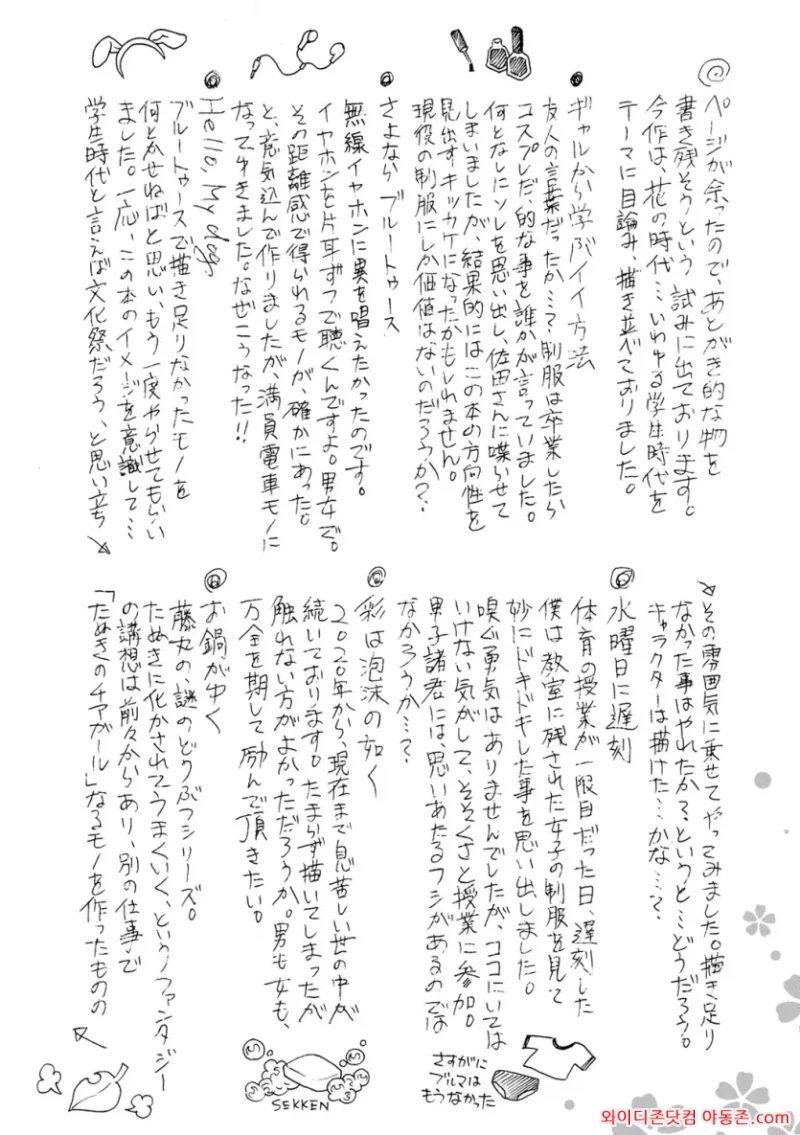 ページが余ったので、あとがき的な物を
書き残そうという試みに出ております。
今作は、花の時代…いわゆる学生時代を
テーマに目論み、描き並べておりました。
ギャルから学ぶイイ方法
友人の言葉だったか…?制服は卒業したら
コスプレだ、的な事を誰かが言っていました。
何となしにソレを思い出し、佐田さんに喋らせて
しまいましたが、結果的にはこの本の方向性を
見出すキッカケになったかもしれません。
現役の制服にしか価値はないのだろうか?
さよならブルートゥース
無線イヤホンに異を唱えたかったのです。
イヤホンを片耳ずつで聴くんですよ。男女で。
その距離感で得られるモノが、確かにあった。
と、意気込んで作りましたが、満員電車モノに
なってゆきました。なぜこうなった!!
Hello, My dog
ブルートゥースで描き足りなかったモノを
何とかせねばと思い、もう一度やらせてもらい
ました。一応、この本のイメージを意識して…
学生時代と言えば文化祭だろう、と思い立ち
その雰囲気に乗せてやってみました。描き足り
なかった事はやれたか?というと…どうだろう。
キャラクターは描けた…かな…?
水曜日に遅刻
体育の授業が一限目だった日、遅刻した
僕は教室に残された女子の制服を見て
妙にドキドキした事を思い出しました。
嗅ぐ勇気はありませんでしたが、ココにいては
いけない気がして、そそくさと授業に参加。
男子諸君には、思いあたるフシがあるのでは
なかろうか…?
さすがに
ブルマは
もうなかった
彩は泡沫の如く
2020年から、現在まで息苦しい世の中が
続いております。たまらず描いてしまったが
触れない方がよかっただろうか。男も女も、
万全を期して励んで頂きたい。
SEKKEN
お鍋がゆく
藤丸の、謎のどうぶつシリーズ。
たぬきに化かされてうまくいく、というファンタジー
の講想は前々からあり、別の仕事で
「たぬきのチアガール」なるモノを作ったものの
와이디존닷컴 아동존.com